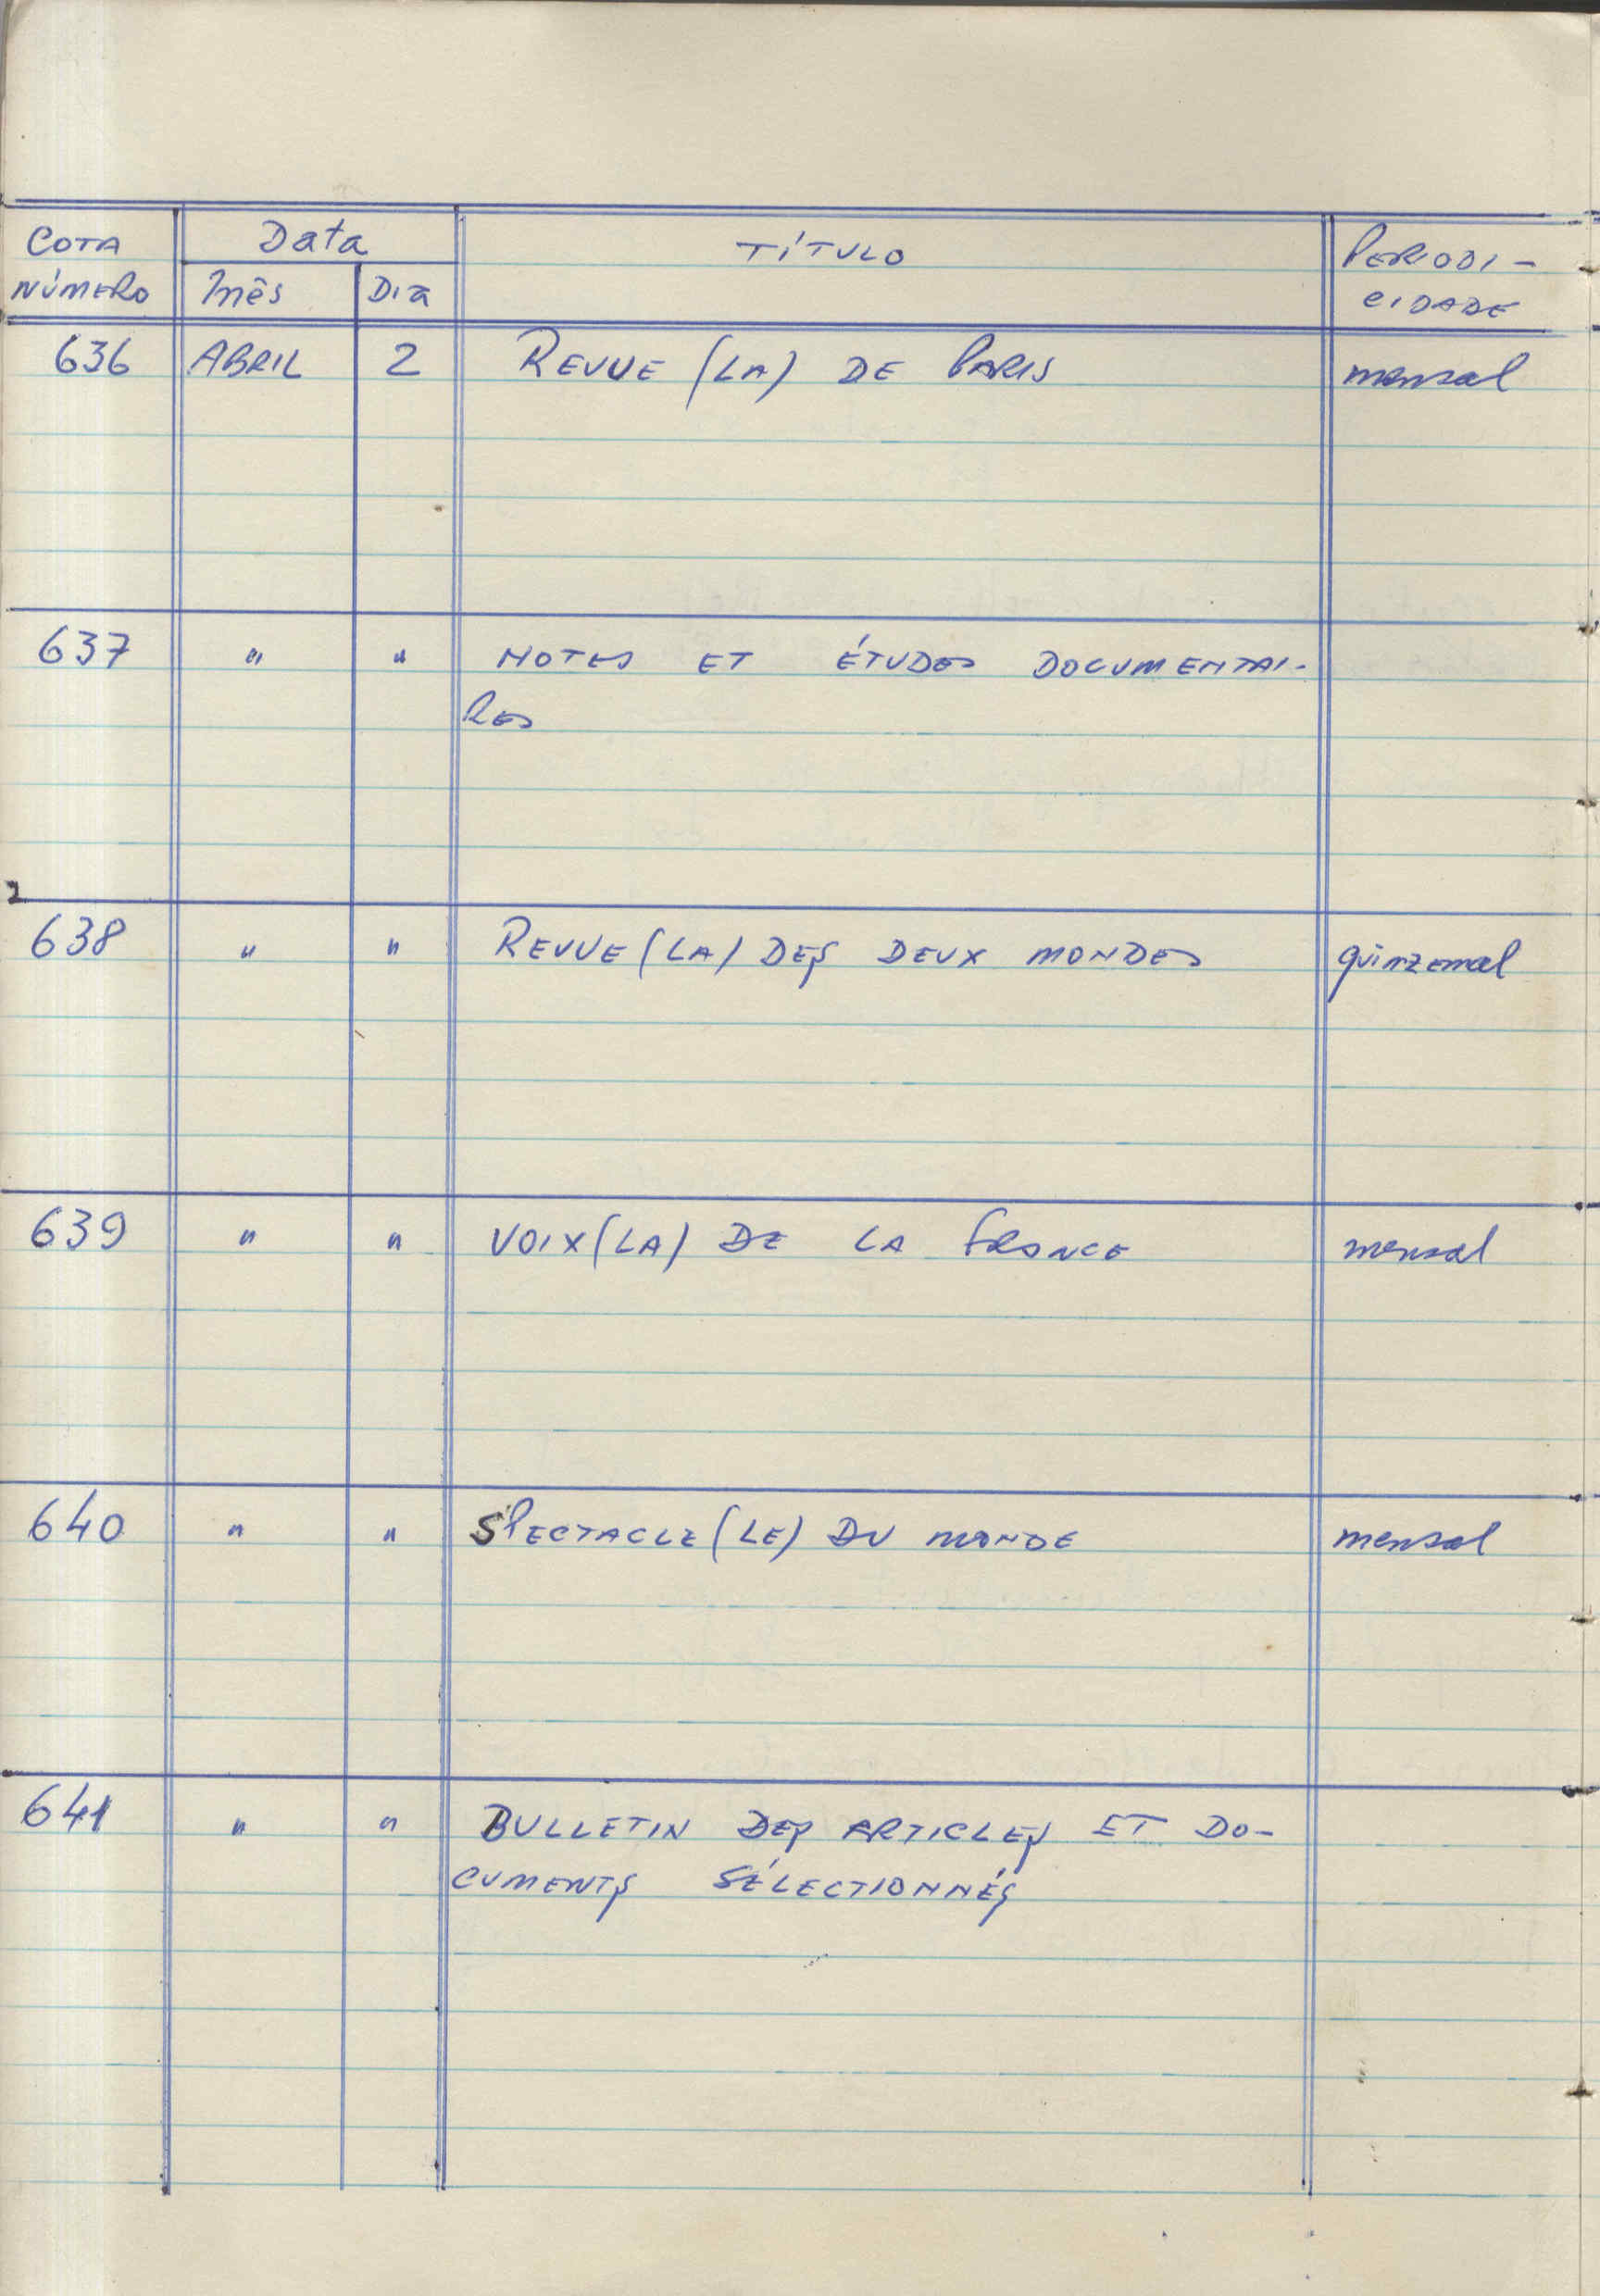 COTA NÚMERO Data TÍTULO PERIODI-
CIDADE
Mês Dia
636 ABRIL 2 REVUE (LA) DE PARIS mensal
637 " " NOTES ET ÉTUDES DOCUMENTAI-
RES
638 " " REVUE (LA) DES DEUX MONDES quinzenal
639 " " VOIX (LA) DE LA FRANCE mensal
640 " " SPECTACLE (LE) DU MONDE mensal
641 " " BULLETIN DES ARTICLES ET DO-
CUMENTS SÉLECTIONNÉS